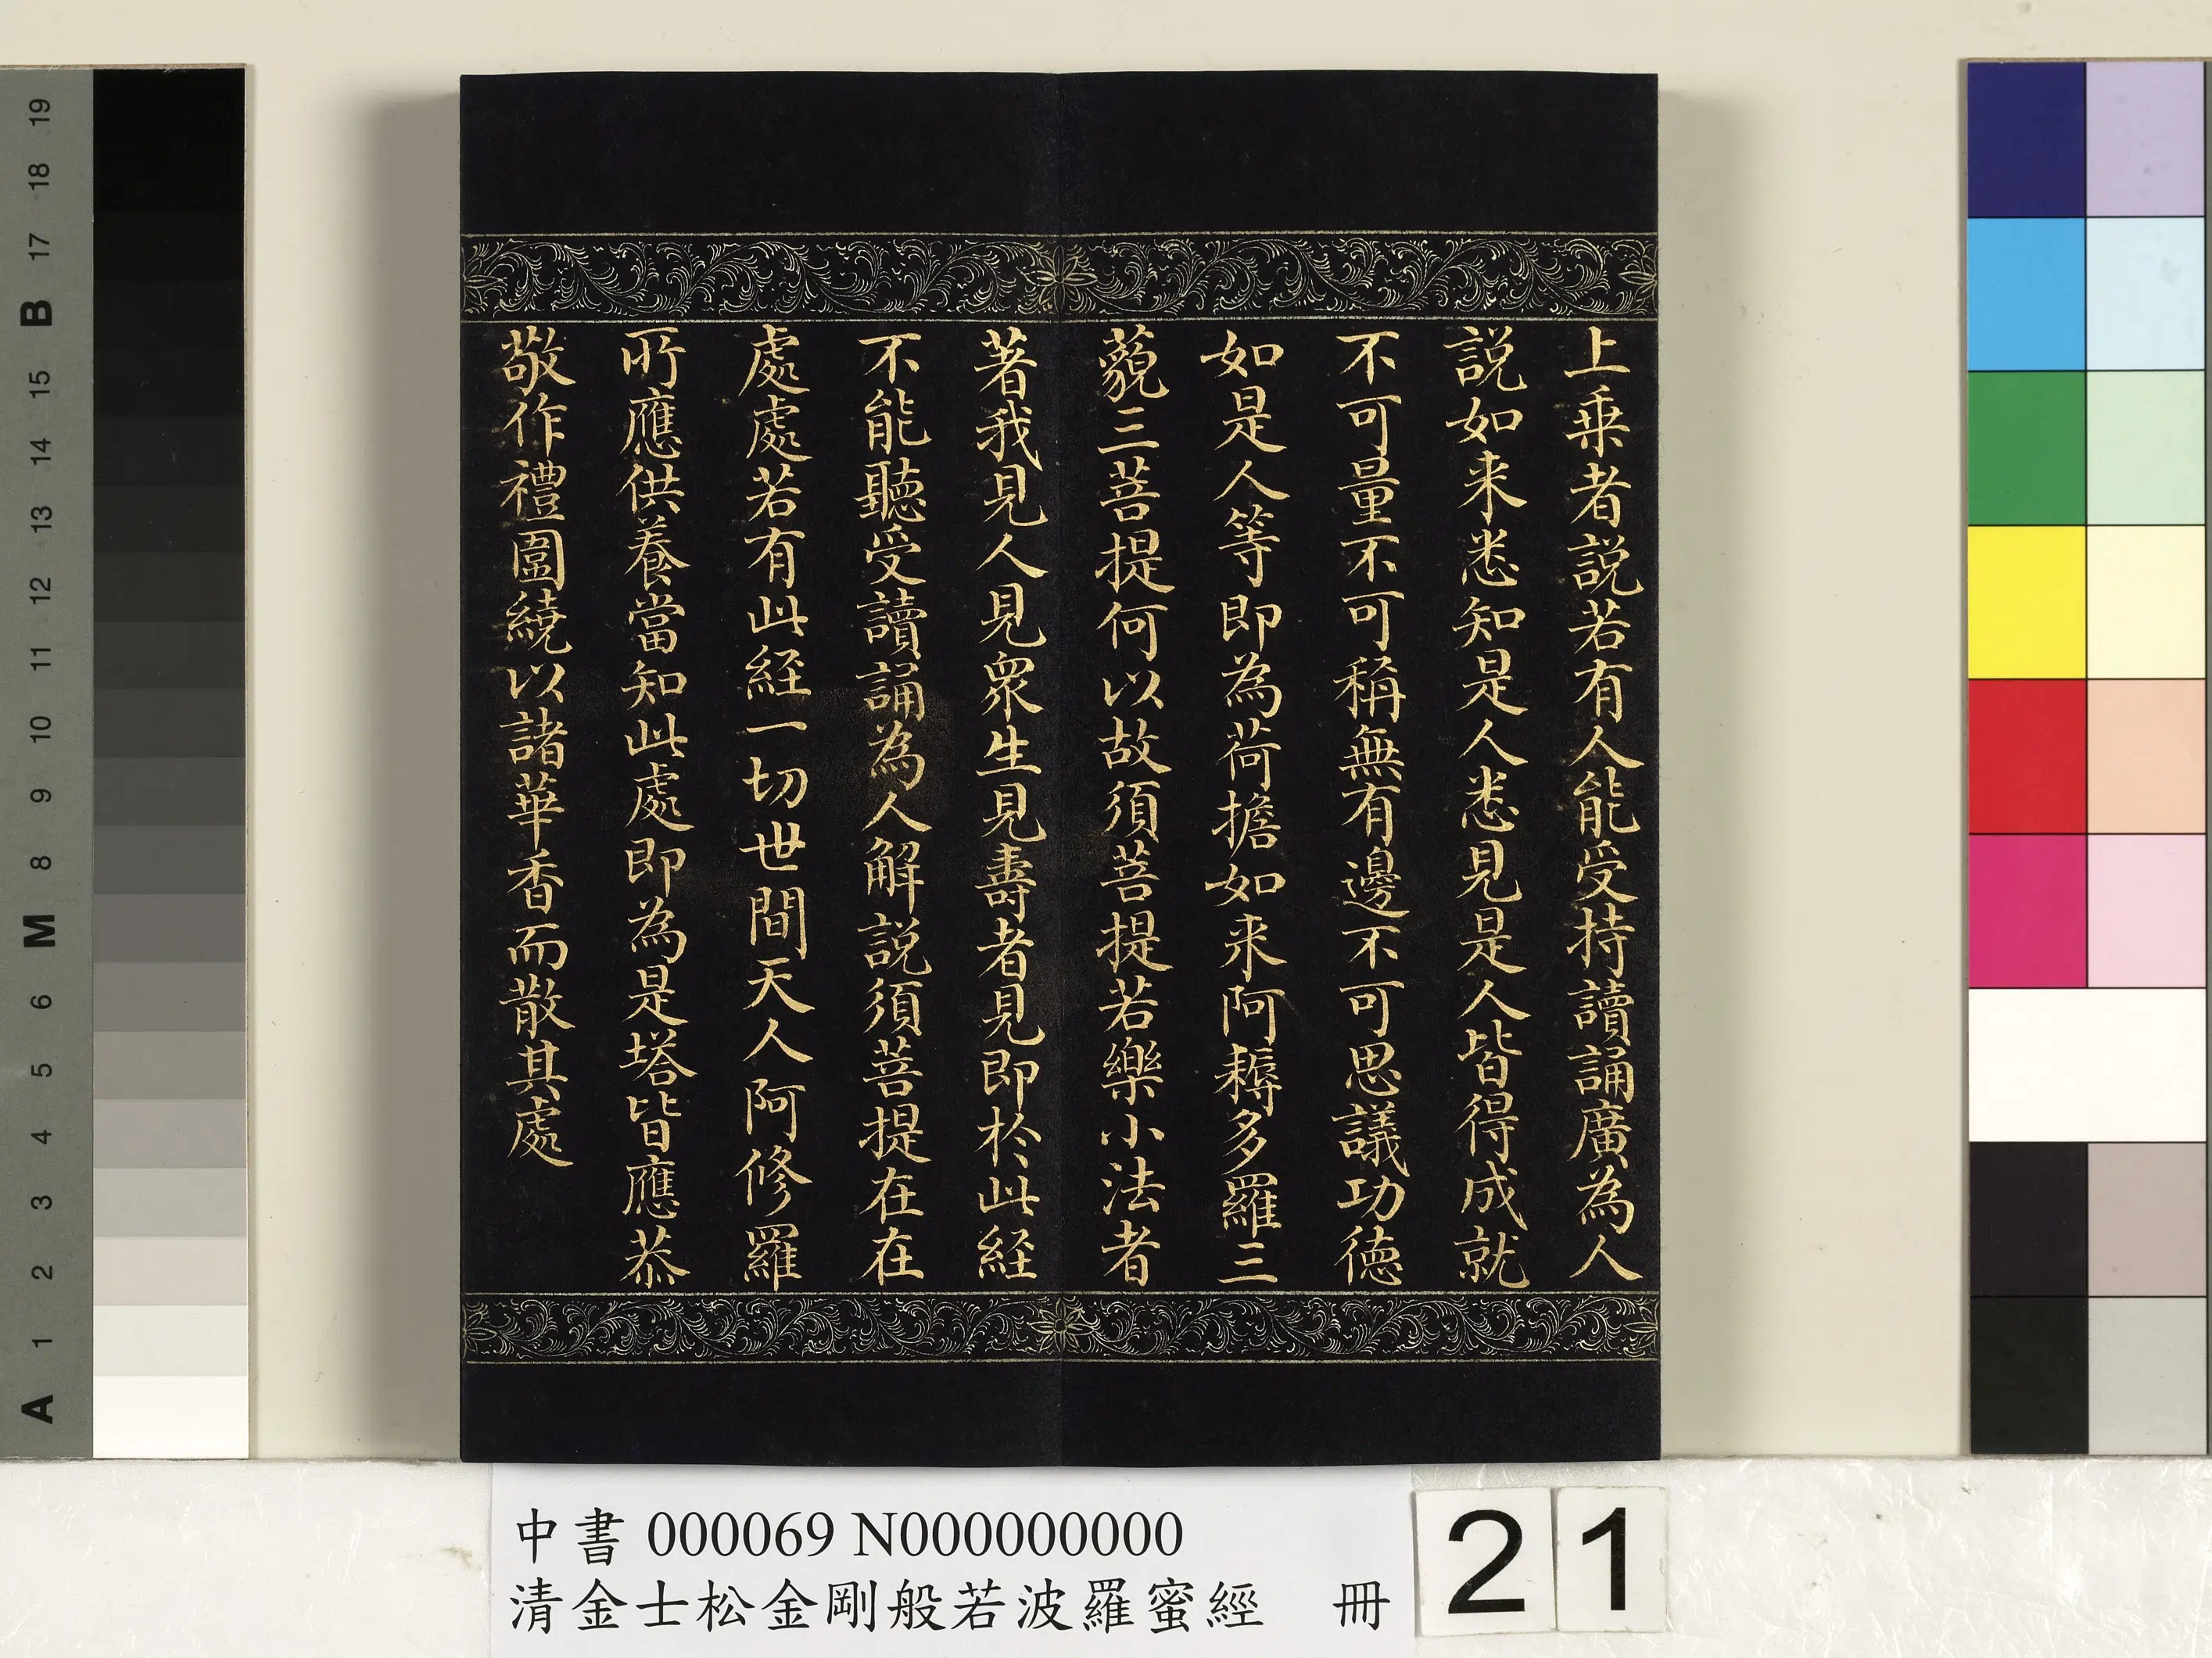 上乗者説若有人能受持讀誦廣為人
説如来悉知是人悉見是人皆得成就
不可量不可稱無有邊不可思議功德
如是人等即為荷擔如来阿耨多羅三
藐三菩提何以故須菩提若樂小法者
著我見人見衆生見壽者見即於此経
不能聽受讀誦為人解説須菩提在在
處處若有此経一切世間天人阿修羅
所應供養當知此處即為是塔皆應恭
敬作禮圍繞以諸華香而散其處
中書 000069 N000000000
清金士松金剛般若波羅蜜經 冊
21
A 1 2 3 4 5 6 M 8 9 10 11 12 13 14 15 B 17 18 19